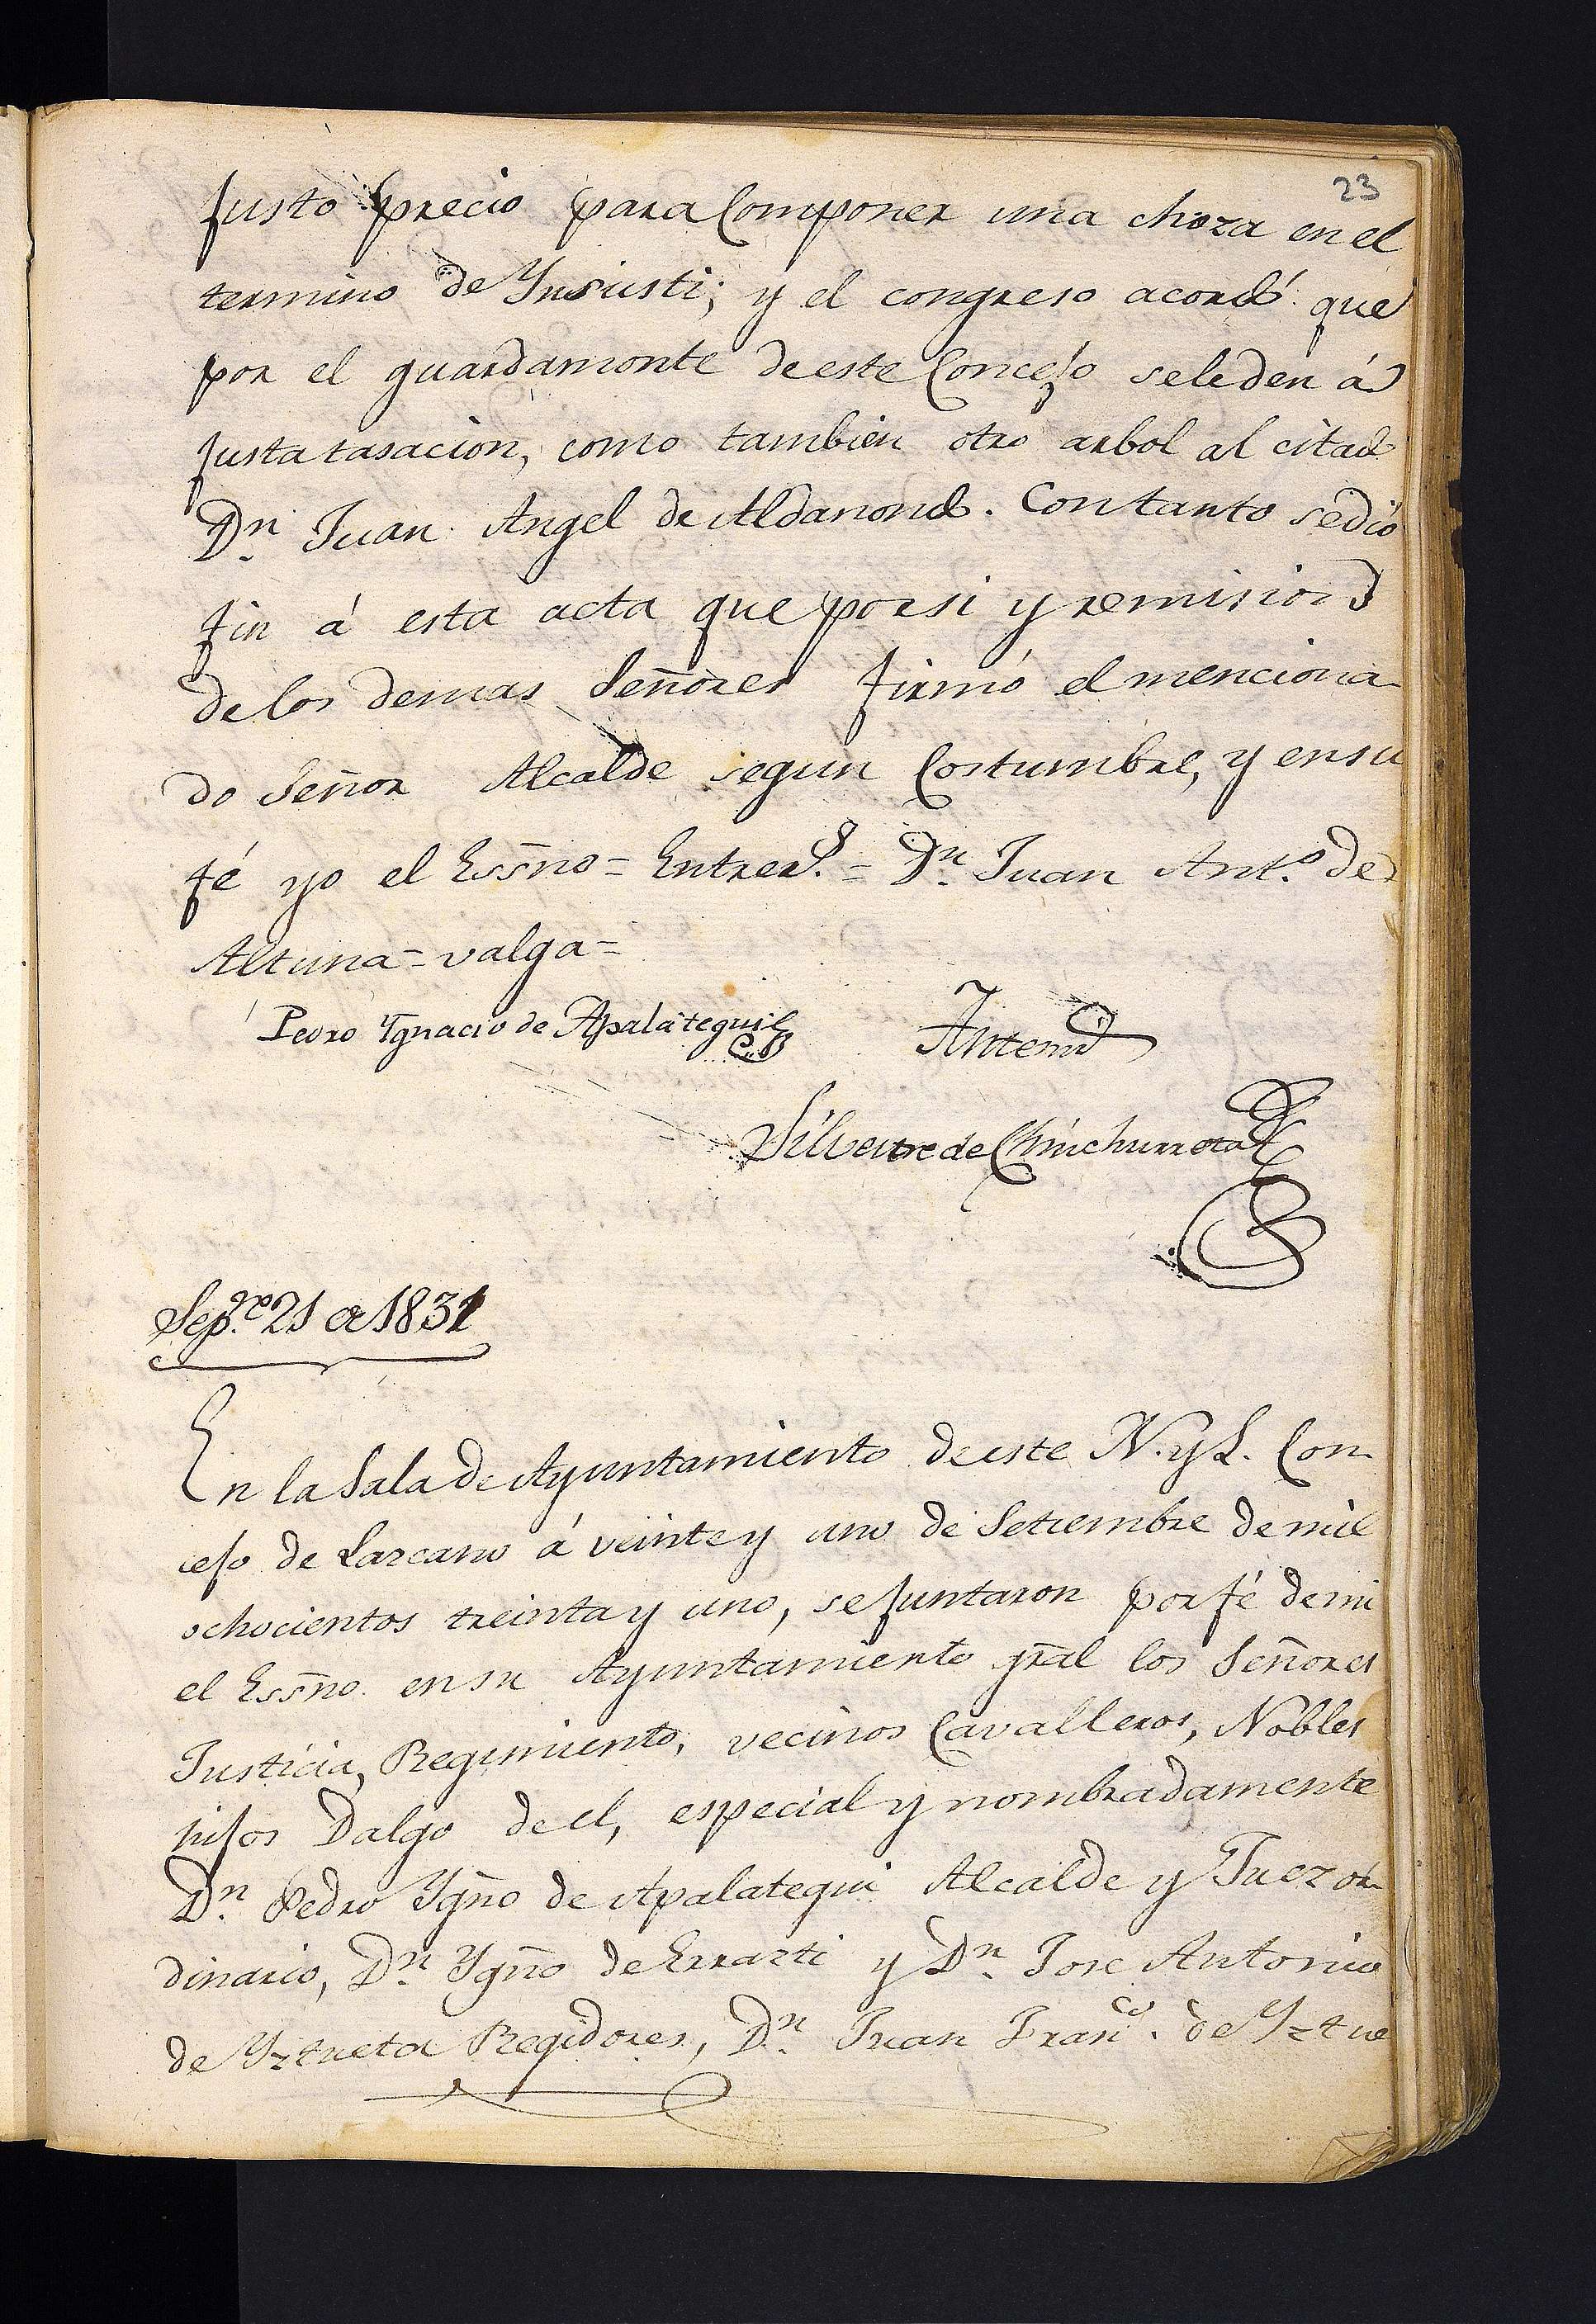 23
justo precio para Componer una choza en el
termino de Ynsusti; y el congreso acordó que
por el guardamonte de este Concejo se le den á
justa tasacion, como tambien otro arbol al citado
Dn. Juan Angel de Aldanondo. Con tanto se dió
fin á esta acta que por si y remision
de los demas Señores firmó el menciona
do Señor Alcalde segun Costumbre, y en su
fé yo el Essno = Entrerr.s = Dn. Juan Ant.o de
Altuna = valga =
Pedro Ygnacio de Apalategui
Antemi
Silvestre de Chinchurreta
Sep.re 21 de 1831
En la Sala de Ayuntamiento de este N. y L. Con
cejo de Lazcano á veinte y uno de Setiembre de mil
ochocientos treinta y uno, se juntaron por fé de mi
el Essño. en su Ayuntamiento gral los Señores
Justicia, Regimiento, vecinos Cavalleros, Nobles
hijos Dalgo de el, especial y nombradamente
Dn. Pedro Ygño de Apalategui Alcalde y Juez or
dinario, Dn. Ygño de Errazti y Dn. Jose Antonio
de Yztueta Regidores, Dn. Juan Franco. de Yztue